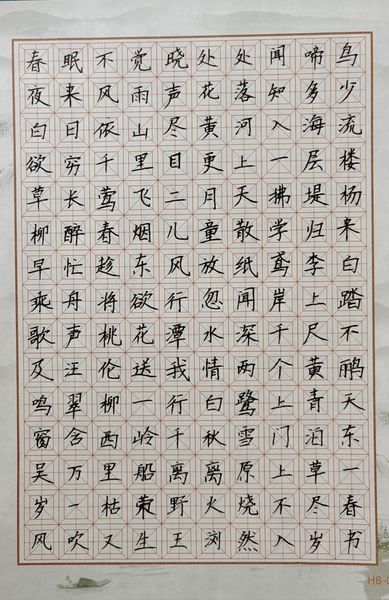 春眠不觉晓处处闻啼鸟
夜来风雨声花落知多少
白日依山尽黄河入海流
欲穷千里目更上一层楼
草长莺飞二月天拂堤杨
柳醉春烟儿童散学归来
早忙趁东风放纸鸢李白
乘舟将欲行忽闻岸上踏
歌声桃花潭水深千尺不
及汪伦送我情两个黄鹂
鸣翠柳一行白鹭上青天
窗含西岭千秋雪门泊东
吴万里船离离原上草一
岁一枯荣野火烧不尽春
风吹又生王浏然入岁书